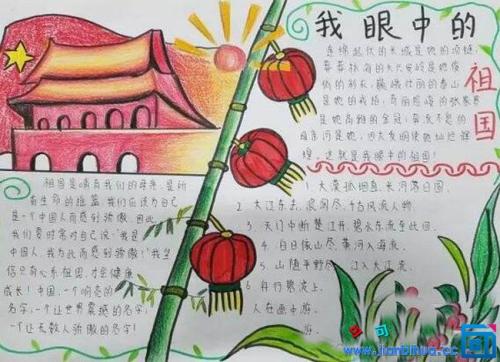 我眼中的
祖国
连绵起伏的长城是她的项链
的大兴安岭是她俊
俏的彩衣,巍峨壮丽的泰山
是她的戒指,的张家界
是她的金冠,奔流不息的
母亲河是她,四大发明使她灿烂辉
煌。这就是我眼中的祖国!
1、大漠孤烟直,长河落日圆。
2、大江东去,浪淘尽,千古风流人物。
3、天门中断楚江开,碧水东流至此回。
4、白日依山尽,黄河入海流。
5、山随平野尽,江入大荒流。
6、舟行碧波上,
人在画中游。
祖国是哺育我们的母亲,是所
有生命的摇篮,我们应该为自己
是一个中国人而感到骄傲。因此,
我们要时常对自己说:“我是
中国人,我为此而感到骄傲!”我坚
信只有心系祖国,才会健康
成长!中国,一个响亮的
名字;一个让世界震撼的名字;
一个让无数人骄傲的名字!
www.jianbihua.cc